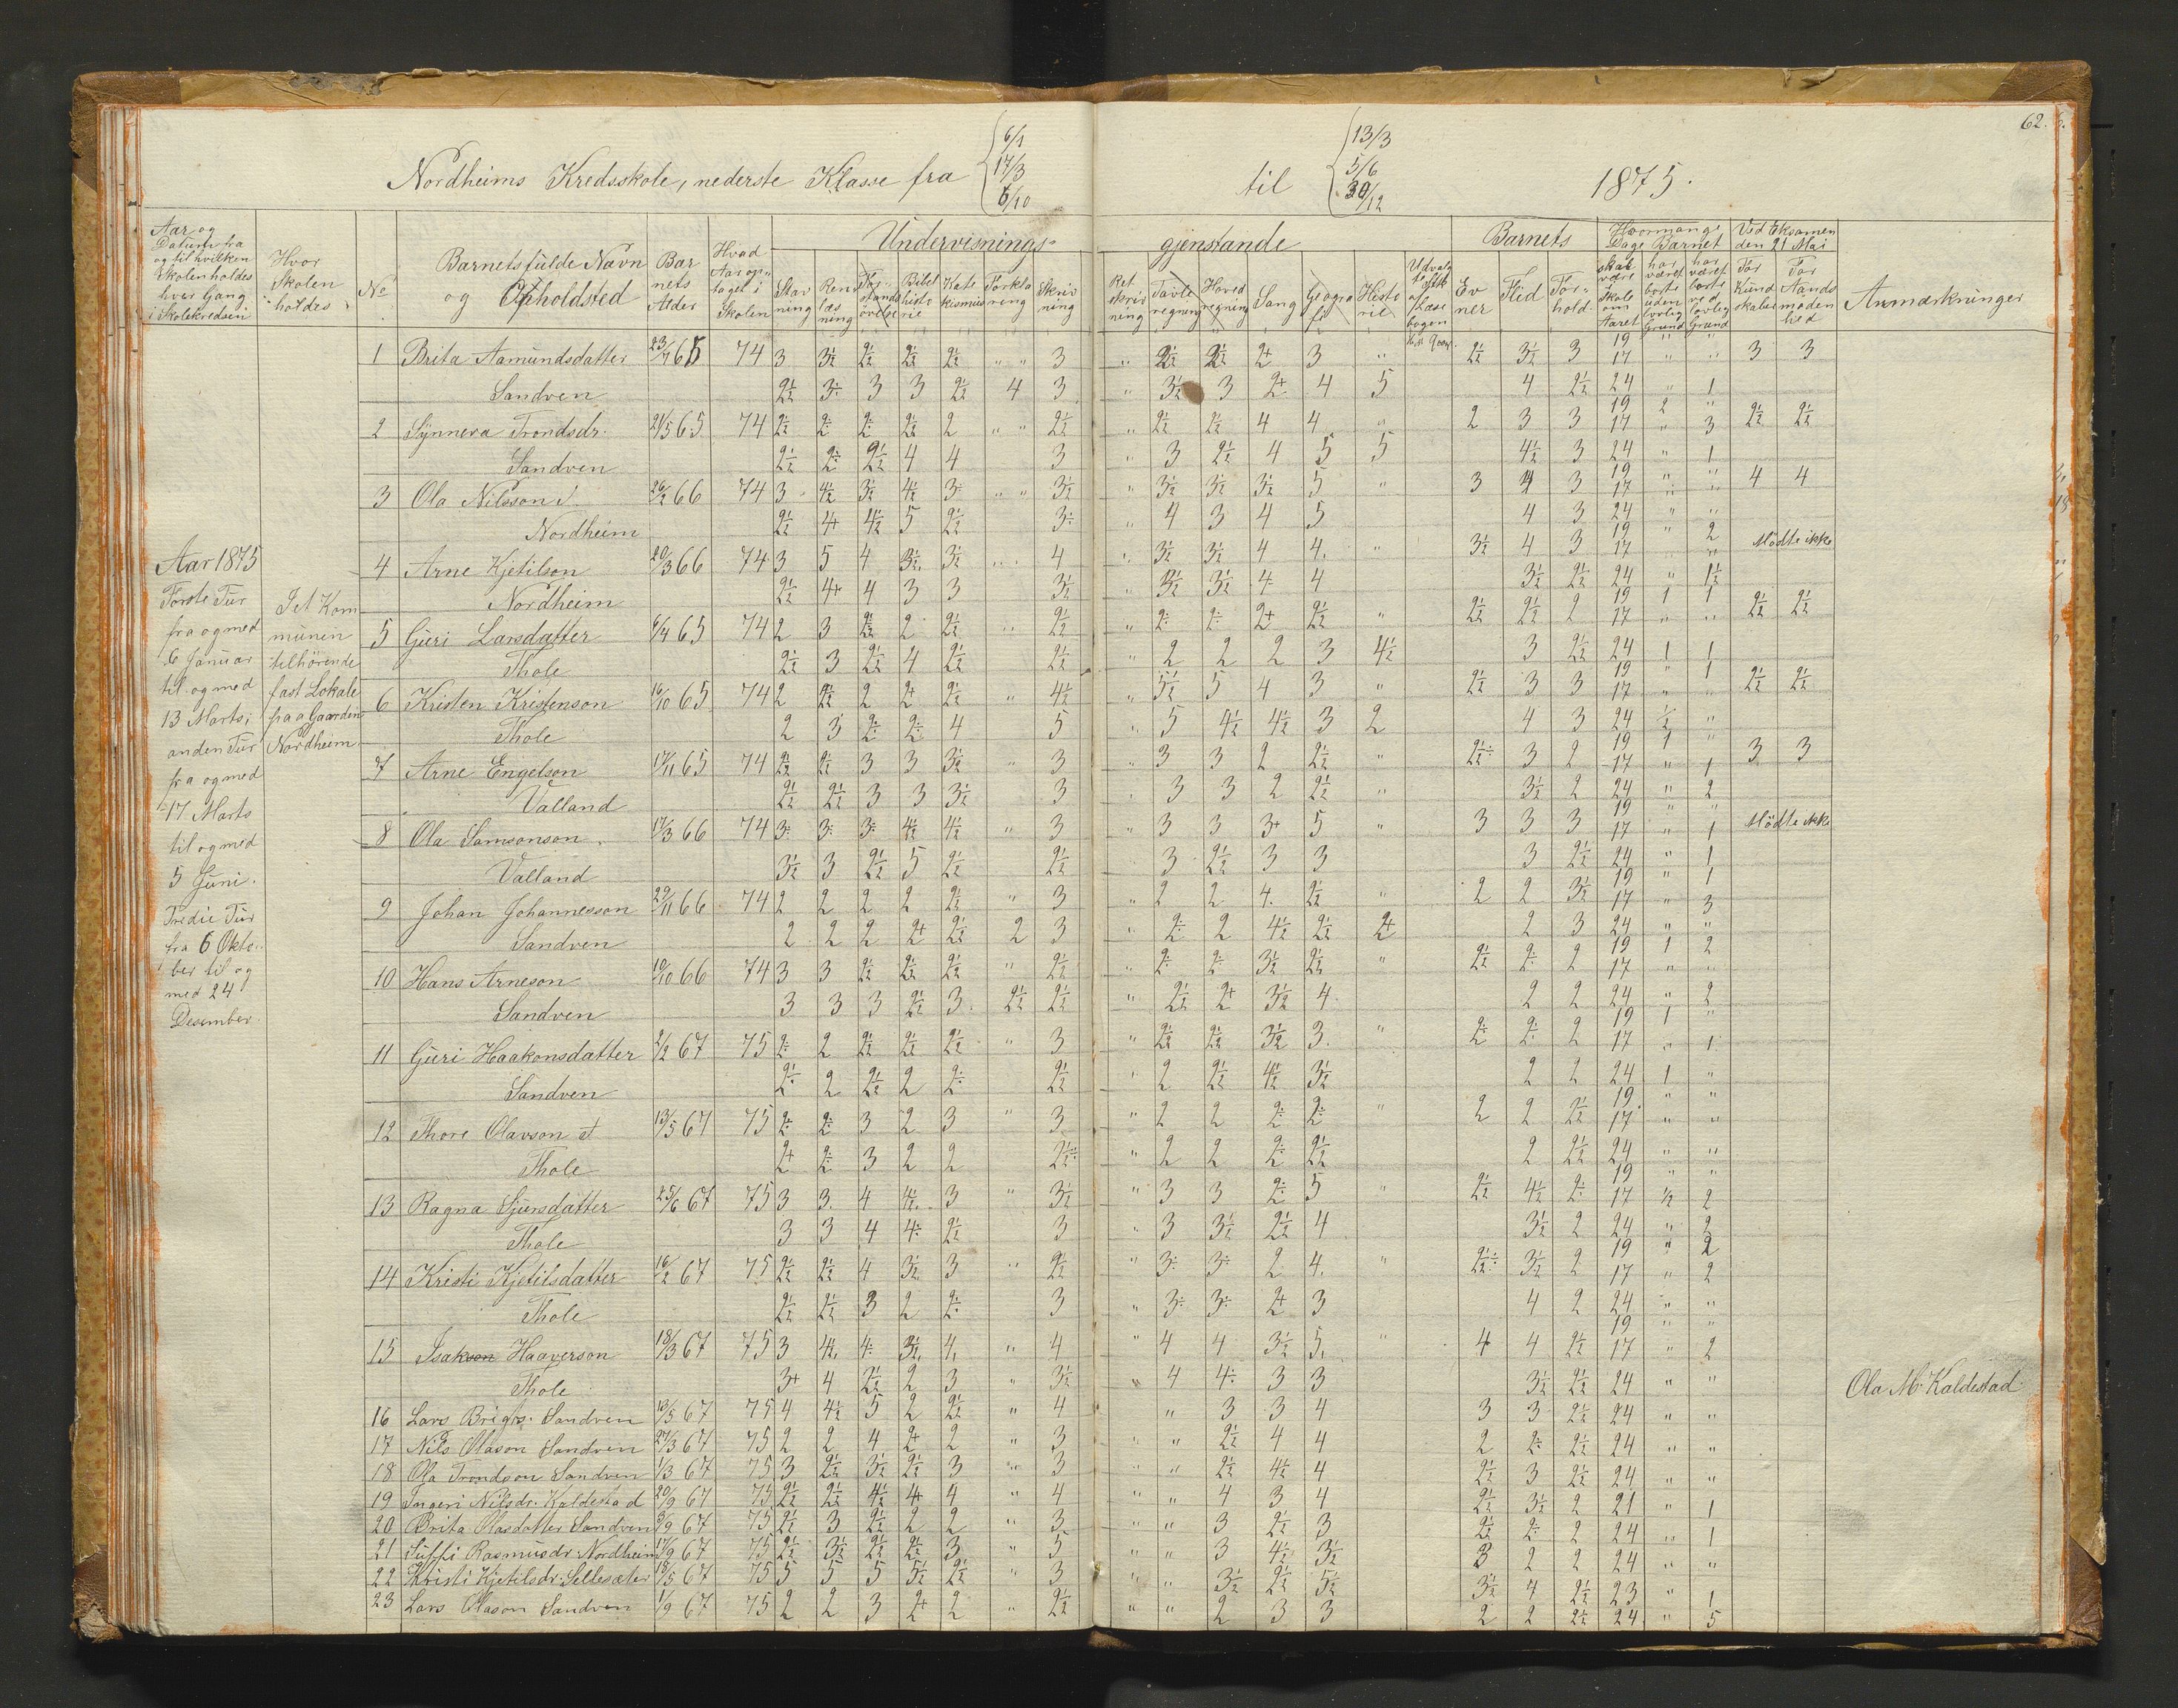 62.
Nordheims Kredsskole, nederste Klasse fra 6/1 17/3 6/10 til 13/3 5/6 1875.
Aar og Datum fra og til hvilken Skolen holdes hver Gang i Skolekredsen
Hvor Skolen holdes
No
Barnets fulde Navn og Opholdsted
Barnets Alder
Hvad Aar optaget i Skolen
Undervisnings-gjenstande
Stavning
Ren læsning
Forstandsøvelse
Bibelhistorie
Katekismus
Forklaring
Skrivning
Retskrivning
Tavleregning
Hovedregning
Sang
Geografi
Historie
Udvalgte Stk af Læsebogen
Barnets
Evner
Flid
Forhold
Hvormange Dage Barnet
skal være i Skole om Aaret
har været borte uden lovlig Grund
har været borte ved lovlig Grund
Ved Eksamen den 21 Mai
For Kundskaber
For Aandsmodenhed
Anmærkninger
Aar 1875
Første Tur
fra og med
6 Januar
til og med
13 Marts;
anden Tur
fra og med
17 Marts
til og med
5 Juni.
Tredie Tur
fra 6 Okto-
ber til og
med 24
Desember.
I et Kom
munen
tilhørende
fast Lokale
paa Gaarden
Nordheim.
1 Brita Aamundsdatter 23/7 65 74 3 3½ 2½ 2½ 2½ " " 3 " 2½ 2½ 2+ 3 " 2½ 3½ 3 19 17 " " 3 3
Sandven 2½ 3÷ 3 3 2½ 4 3 " 3½ 3 2+ 4 5 4 2½ 24 " 1
2 Synneva Trondsdr. 21/5 65 74 2½ 2÷ 2÷ 2½ 2 " " 2½ " 2½ 2½ 4 4 " 2 3 3 19 17 2 " " 3 2½ 2½
Sandven 2½ 2÷ 2½ 4 4 3 " 3 2½ 4 5 5 4½ 3 24 " 1
3 Ola Nilsson 26/2 66 74 3 4½ 3½ 4½ 3 " " 3½ " 3½ 3½ 3½ 5 " 3 4 3 19 17 " " 4 4
Nordheim 2½ 4+ 4½ 5 2½ 3÷ " 4 3 4 5 4 3 24 " "
4 Arne Kjetilson 20/3 66 74 3 5 4 3½ 3½ " 4 " 3½ 3½ 4 4 " 3½ 4 3 19 17 " 2 Mödte ikke
Nordheim 2½ 4+ 4 3 3 3½ " 3½ 3½ 4 4 3½ 2½ 24 " 1½
5 Guri Larsdatter 6/4 65 74 2 3 2½ 2 2½ " 2½ " 2÷ 2÷ 2+ 2½ " 2½ 2½ 2 19 17 1 1 " " 2½ 2½
Thole 2½ 3 2½ 4 2½ 2½ " 2 2 2 3 4½ 3 2½ 24 1 1
6 Kristen Kristenson 16/10 65 74 2 2½ 2 2+ 2½ " 4½ " 5½ 5 4 3 " 2½ 3 3 19 17 " 1 " " 2½ 2½
Thole 2 3 2÷ 2÷ 4 5 " 5 4½ 4½ 3 2 4 3 24 ½ "
7 Arne Engelson 17/11 65 74 2½ 2½ 3 3 3½ " 3 " 3 3 2 2½ " 2½÷ 3 2 19 17 1 " " 1 3 3
Valland 2½ 2½ 3 3 3½ 3 " 3 3 2 2½ " 3½ 2 24 " 2
8 Ola Samsonson 17/3 66 74 3÷ 3÷ 3÷ 4½ 4½ " 3 " 3 3 3+ 5 " 3 3 3 19 17 " " " 1 Mödte ikke
Valland 3½ 3 2½ 5 2½ 2½ 3 2½ 3 3 3 2½ 24 " 1
9 Johan Johannesson 29/11 66 74 2 2 2 2 2½ " 3 " 2 2 4 2½ " 2 2 3½ 19 17 " 1 " 3
Sandven 2 2 2 2+ 2½ 2 3 " 2÷ 2 4½ 2½ 2+ 2 3 24 " "
10 Hans Arneson 10/10 66 74 3 3 2½ 2½ 2½ " 2½ " 2÷ 2÷ 3½ 2½ " 2½ 2÷ 2 19 17 1 2 " "
Sandven 3 3 3 2½ 3 2½ 2½ " 2½ 2+ 3½ 4 2 2 24 " 2
11 Guri Haakonsdatter 2/2 67 75 2÷ 2 2½ 2½ 2½ " 3 " 2½ 2½ 3½ 3 " 2÷ 2÷ 2 19 17 1 " " 1
Sandven 2½ 2 2½ 2 2÷ 2½ " 2 2½ 4½ 3½ 2 2 24 1 "
12 Thore Olavson 13/5 67 75 2÷ 2÷ 3 2 3 " 3 " 2 2 2÷ 2÷ " 2 2 2½ 19 17 " " " "
Thole 2+ 2÷ 3 2 2 2½÷ " 2 2 2÷ 2½ 2 2½ 24 " "
13 Ragna Sjursdatter 25/6 67 75 3 3 4 4½ 3 " 3½ " 3 3 2÷ 5 " 2½ 4½ 2÷ 19 17 " " ½ 2
Thole 3 3 4 4÷ 2½ 3 " 3 3½ 2½ 4 3½ 2 24 " 2
14 Kristi Kjetilsdatter 16/2 67 75 2½ 2½ 4 3½ 3 " 2½ " 3÷ 3÷ 2 4 " 2½÷ 3½ 2 19 17 " 2 " 2
Thole 2½ 2½ 3 2 2÷ 3 " 3÷ 3÷ 2+ 3 4 2 24 " "
15 Isakson Haaverson 18/3 67 75 3 4½ 4÷ 3½ 4 " 4 " 4 4 3½ 5 " 4 4 2½ 19 17 " " " 2
Thole 3+ 4 2½ 2 3 " 3½ " 4 4÷ 3 3 3½ 2½ 24 " "
Ola M. Kaldestad
16 Lars Brigts. Sandven 13/5 67 75 4 4½ 5 2 2½ " 4 " 3 3 4 3 3 2½ 24 " "
17 Nils Olason Sandven 27/3 67 75 2 2 4 2+ 2 " 3 " " 2½ 4 4 2 2÷ 2½ 24 " "
18 Ola Trondson Sandven 1/3 67 75 3 2½ 3½ 2½ 3 " 3 " " 2½ 4½ 4 2½ 3 2½ 24 " "
19 Ingeri Nilsdr. Kaldestad 20/9 67 75 2½ 2½ 4½ 4 4 " 4 " " 4 3 4 2½ 3½ 2 21 " 1
20 Brita Olasdatter Sandven 3/9 67 75 2½ 3 2½ 2 2 " 3 " " 3 2½ 3 2½ 2÷ 2 24 " 1
21 Suffi Rasmusdr. Nordheim 17/9 67 75 2½ 3½ 2½ 2½ 3 " 5 " " 3 4½ 3½ 3 2 2 24 " "
22 Kristi Kjetilsdr. Sellesæter 18/5 67 75 5 5 5 5½ 2½ " 3 " " 3½ 2½ 5½ 3½ 4 2½ 23 " 1
23 Lars Olason Sandven 1/9 67 75 2 2 3 2+ 2 " 2½ " " 2 3 3 2 2 2½ 24 " 5